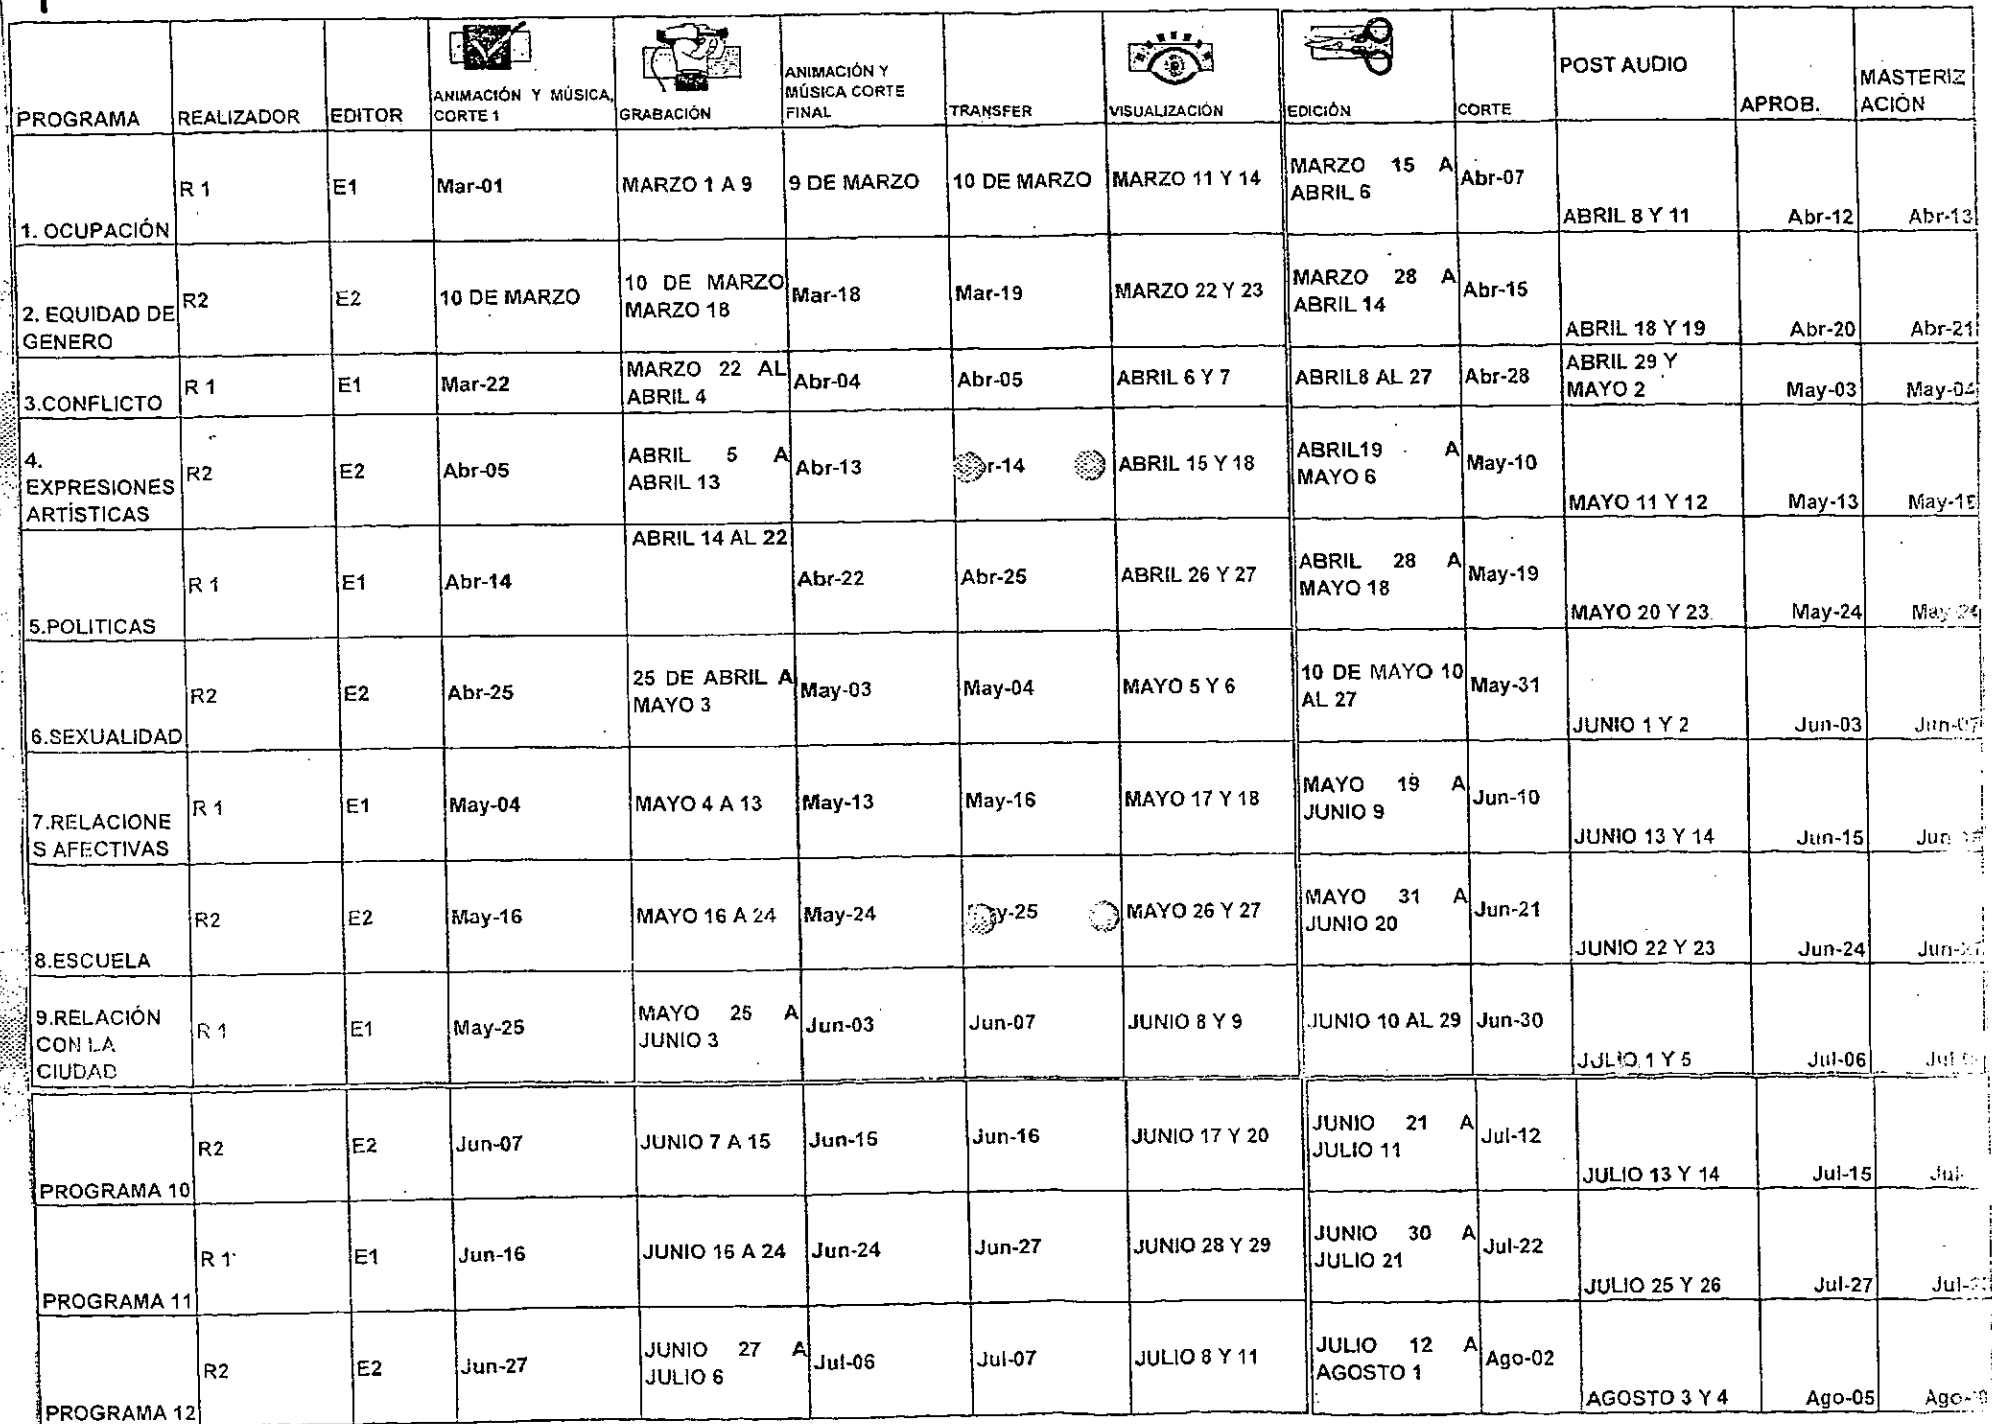 PROGRAMA REALIZADOR EDITOR ANIMACIÓN Y MÚSICA, CORTE 1 GRABACIÓN ANIMACIÓN Y MÚSICA CORTE FINAL TRANSFER VISUALIZACIÓN EDICIÓN CORTE POST AUDIO APROB. MASTERIZ ACIÓN
1. OCUPACIÓN R 1 E1 Mar-01 MARZO 1 A 9 9 DE MARZO 10 DE MARZO MARZO 11 Y 14 MARZO 15 A ABRIL 6 Abr-07 ABRIL 8 Y 11 Abr-12 Abr-13
2. EQUIDAD DE GENERO R2 E2 10 DE MARZO 10 DE MARZO MARZO 18 Mar-18 Mar-19 MARZO 22 Y 23 MARZO 28 A ABRIL 14 Abr-15 ABRIL 18 Y 19 Abr-20 Abr-21
3.CONFLICTO R 1 E1 Mar-22 MARZO 22 AL ABRIL 4 Abr-04 Abr-05 ABRIL 6 Y 7 ABRIL8 AL 27 Abr-28 ABRIL 29 Y MAYO 2 May-03 May-04
4. EXPRESIONES ARTÍSTICAS R2 E2 Abr-05 ABRIL 5 A ABRIL 13 Abr-13 r-14 ABRIL 15 Y 18 ABRIL19 A MAYO 6 May-10 MAYO 11 Y 12 May-13
5.POLITICAS R 1 E1 Abr-14 ABRIL 14 AL 22 Abr-22 Abr-25 ABRIL 26 Y 27 ABRIL 28 A MAYO 18 May-19 MAYO 20 Y 23 May-24
6.SEXUALIDAD R2 E2 Abr-25 25 DE ABRIL A MAYO 3 May-03 May-04 MAYO 5 Y 6 10 DE MAYO 10 AL 27 May-31 JUNIO 1 Y 2 Jun-03
7.RELACIONE S AFECTIVAS R 1 E1 May-04 MAYO 4 A 13 May-13 May-16 MAYO 17 Y 18 MAYO 19 A JUNIO 9 Jun-10 JUNIO 13 Y 14 Jun-15
8.ESCUELA R2 E2 May-16 MAYO 16 A 24 May-24 y-25 MAYO 26 Y 27 MAYO 31 A JUNIO 20 Jun-21 JUNIO 22 Y 23 Jun-24
9.RELACIÓN CON LA CIUDAD R 1 E1 May-25 MAYO 25 A JUNIO 3 Jun-03 Jun-07 JUNIO 8 Y 9 JUNIO 10 AL 29 Jun-30 JULIO 1 Y 5 Jul-06
PROGRAMA 10 R2 E2 Jun-07 JUNIO 7 A 15 Jun-15 Jun-16 JUNIO 17 Y 20 JUNIO 21 A JULIO 11 Jul-12 JULIO 13 Y 14 Jul-15
PROGRAMA 11 R 1 E1 Jun-16 JUNIO 16 A 24 Jun-24 Jun-27 JUNIO 28 Y 29 JUNIO 30 A JULIO 21 Jul-22 JULIO 25 Y 26 Jul-27
PROGRAMA 12 R2 E2 Jun-27 JUNIO 27 A JULIO 6 Jul-06 Jul-07 JULIO 8 Y 11 JULIO 12 A AGOSTO 1 Ago-02 AGOSTO 3 Y 4 Ago-05